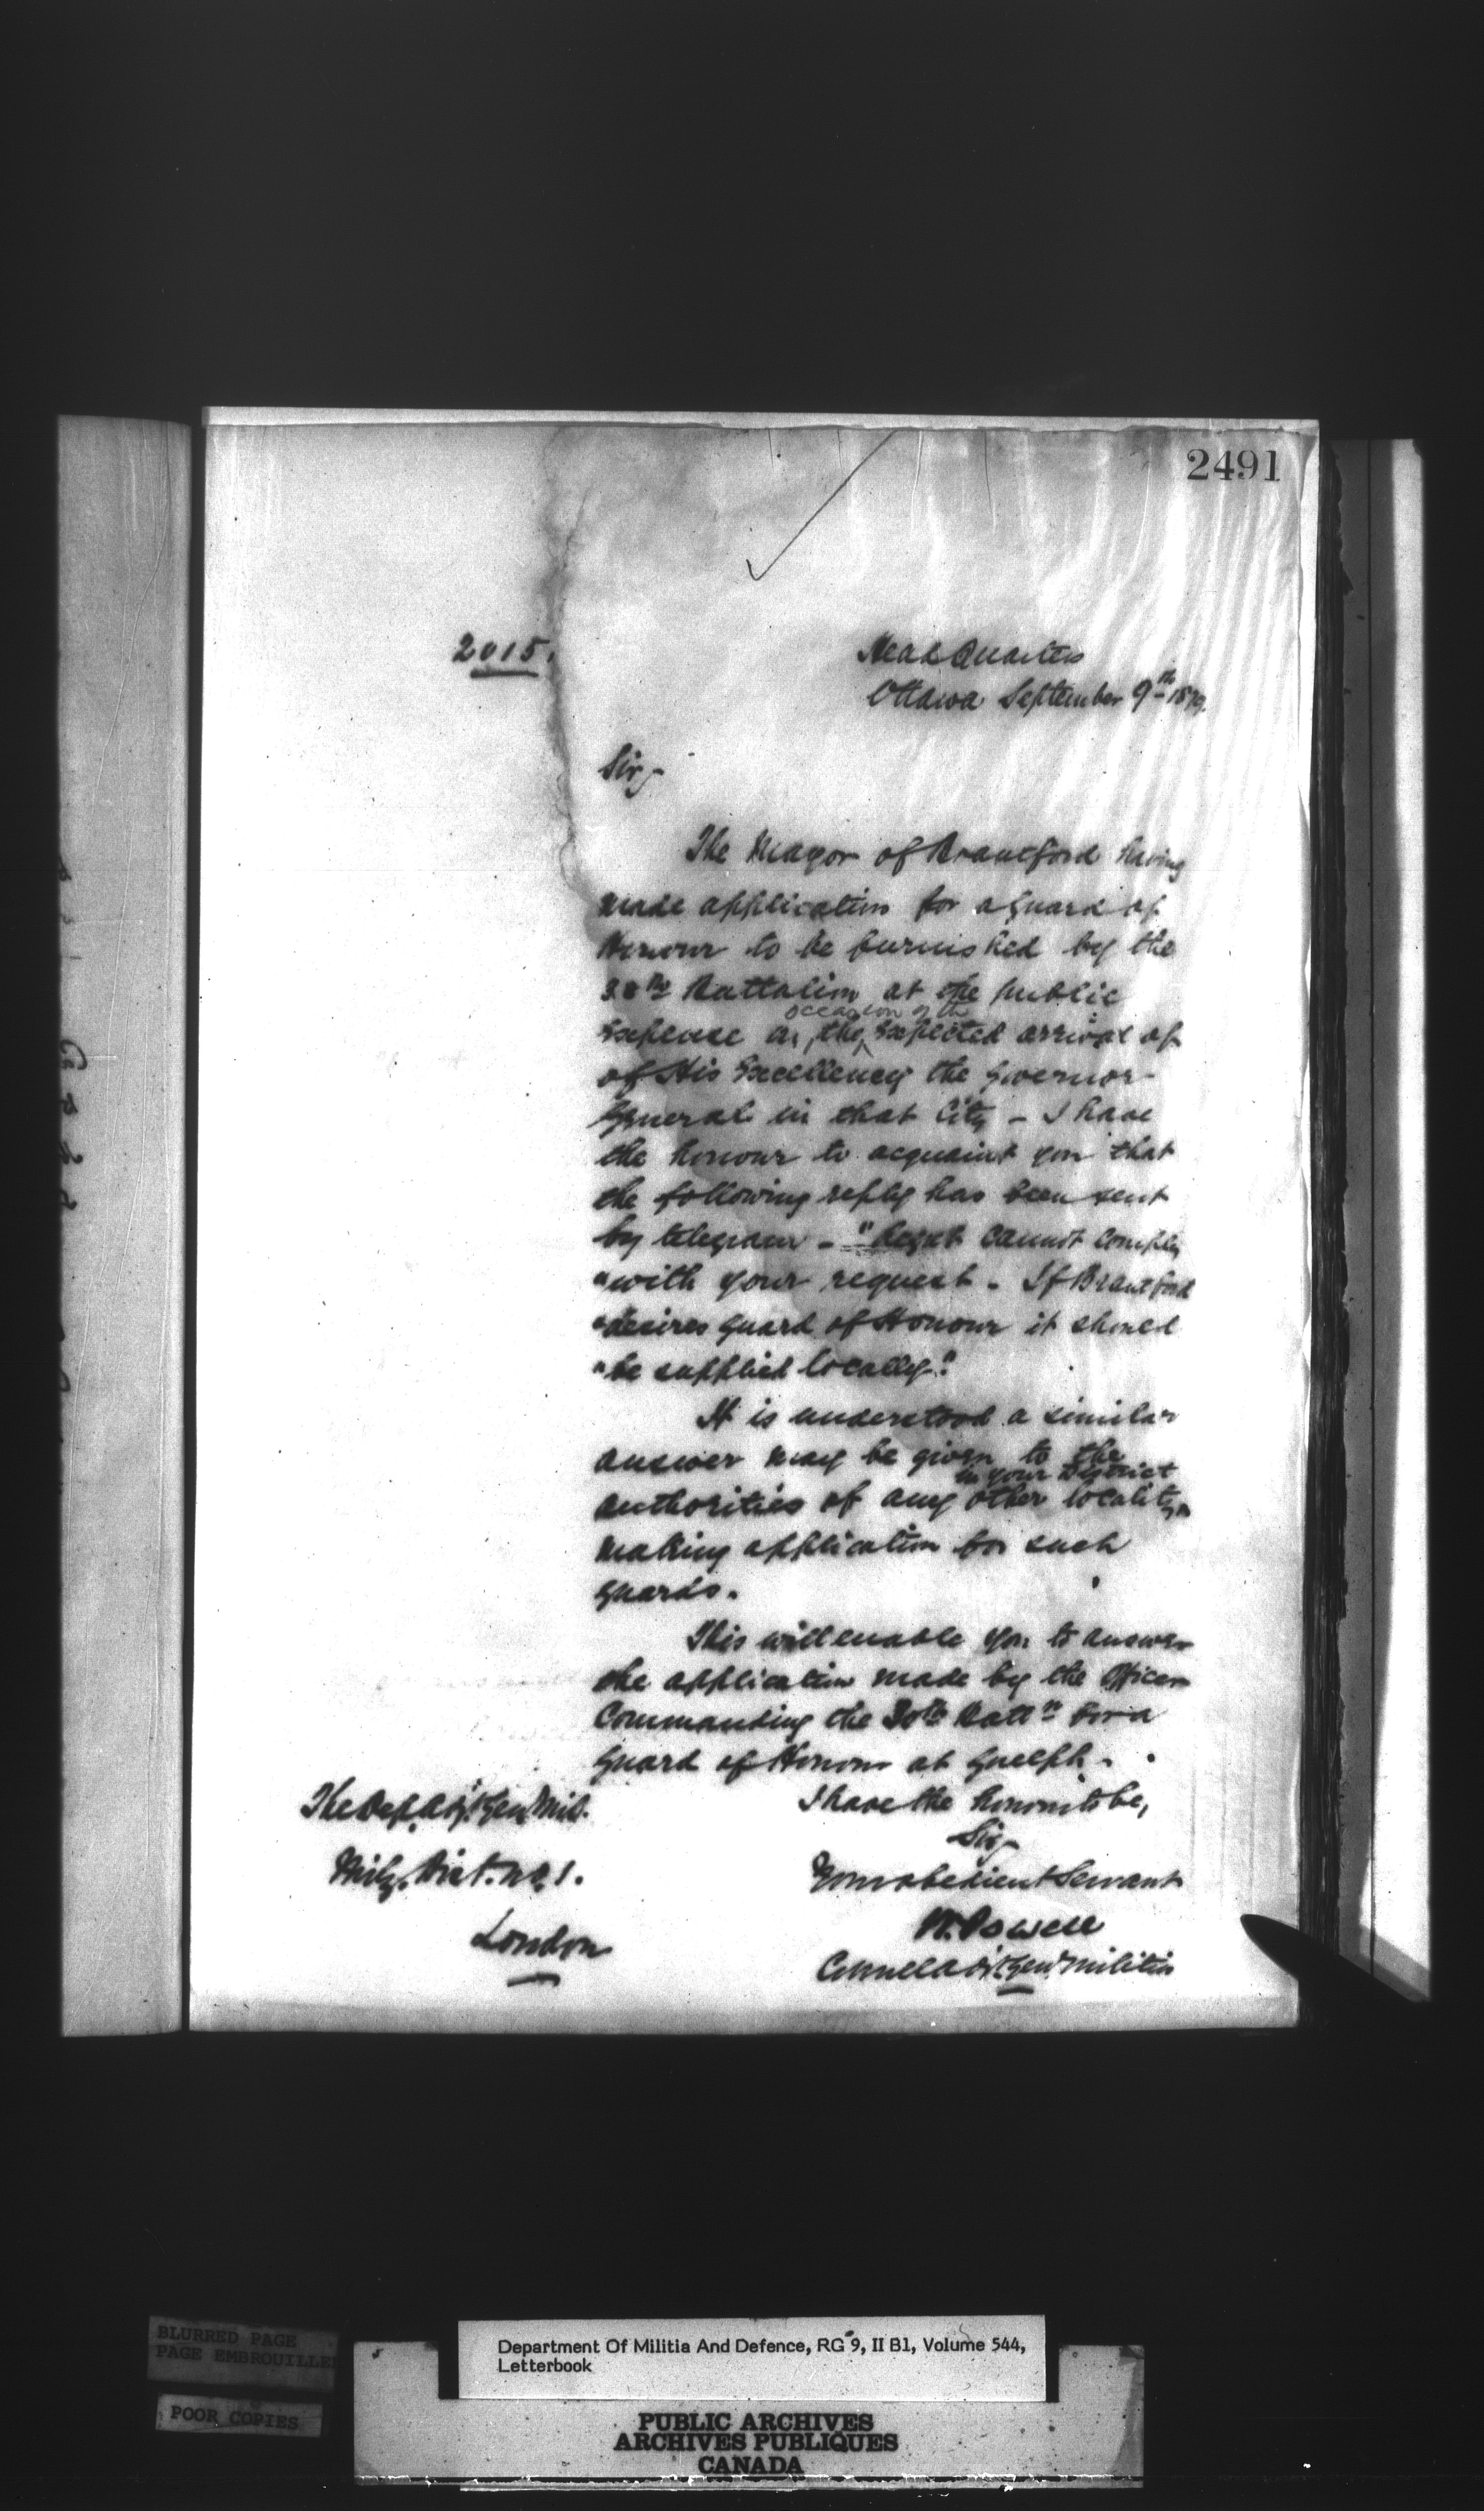 2491
2015.
Head Quarters
Ottawa September 9th 1879.
Sir,
The Mayor of Brantford having
made application for a Guard of
Honour to be furnished by the
38th Battalion at the public
expense on the occasion of the expected arrival of
of His Excellency the Governor
General in that City - I have
the honour to acquaint you that
the following reply has been sent
by telegram - "Regret cannot comply
"with your request. If Brantford
"desires guard of Honour it should
"be supplied locally."
It is understood a similar
answer may be given to the
authorities of any other locality in your District
making application for such
guards.
This will enable you to answer
the application made by the Officer
Commanding the 30th Battn for a
Guard of Honour at Guelph.
I have the honour to be,
Sir,
Your obedient Servant
W. Powell
Colonel Adjt. Genl. Militia
The Dep. Adjt. Genl. Mil.
Mily. Dist. No. 1.
London
BLURRED PAGE
PAGE EMBROUILLEE
POOR COPIES
Department Of Militia And Defence, RG 9, II B1, Volume 544,
Letterbook
PUBLIC ARCHIVES
ARCHIVES PUBLIQUES
CANADA